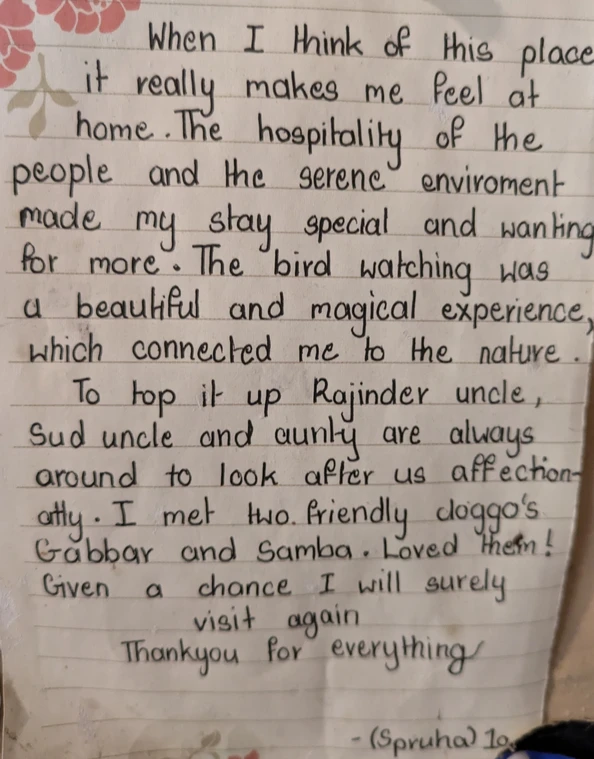 When I think of this place
it really makes me feel at
home. The hospitality of the
people and the serene enviroment
made my stay special and wanting
for more. The bird watching was
a beautiful and magical experience,
which connected me to the nature.
To top it up Rajinder uncle,
Sud uncle and aunty are always
around to look after us affection-
atly. I met two friendly doggo's
Gabbar and Samba. Loved them!
Given a chance I will surely
visit again
Thankyou for everything
- (Spruha)